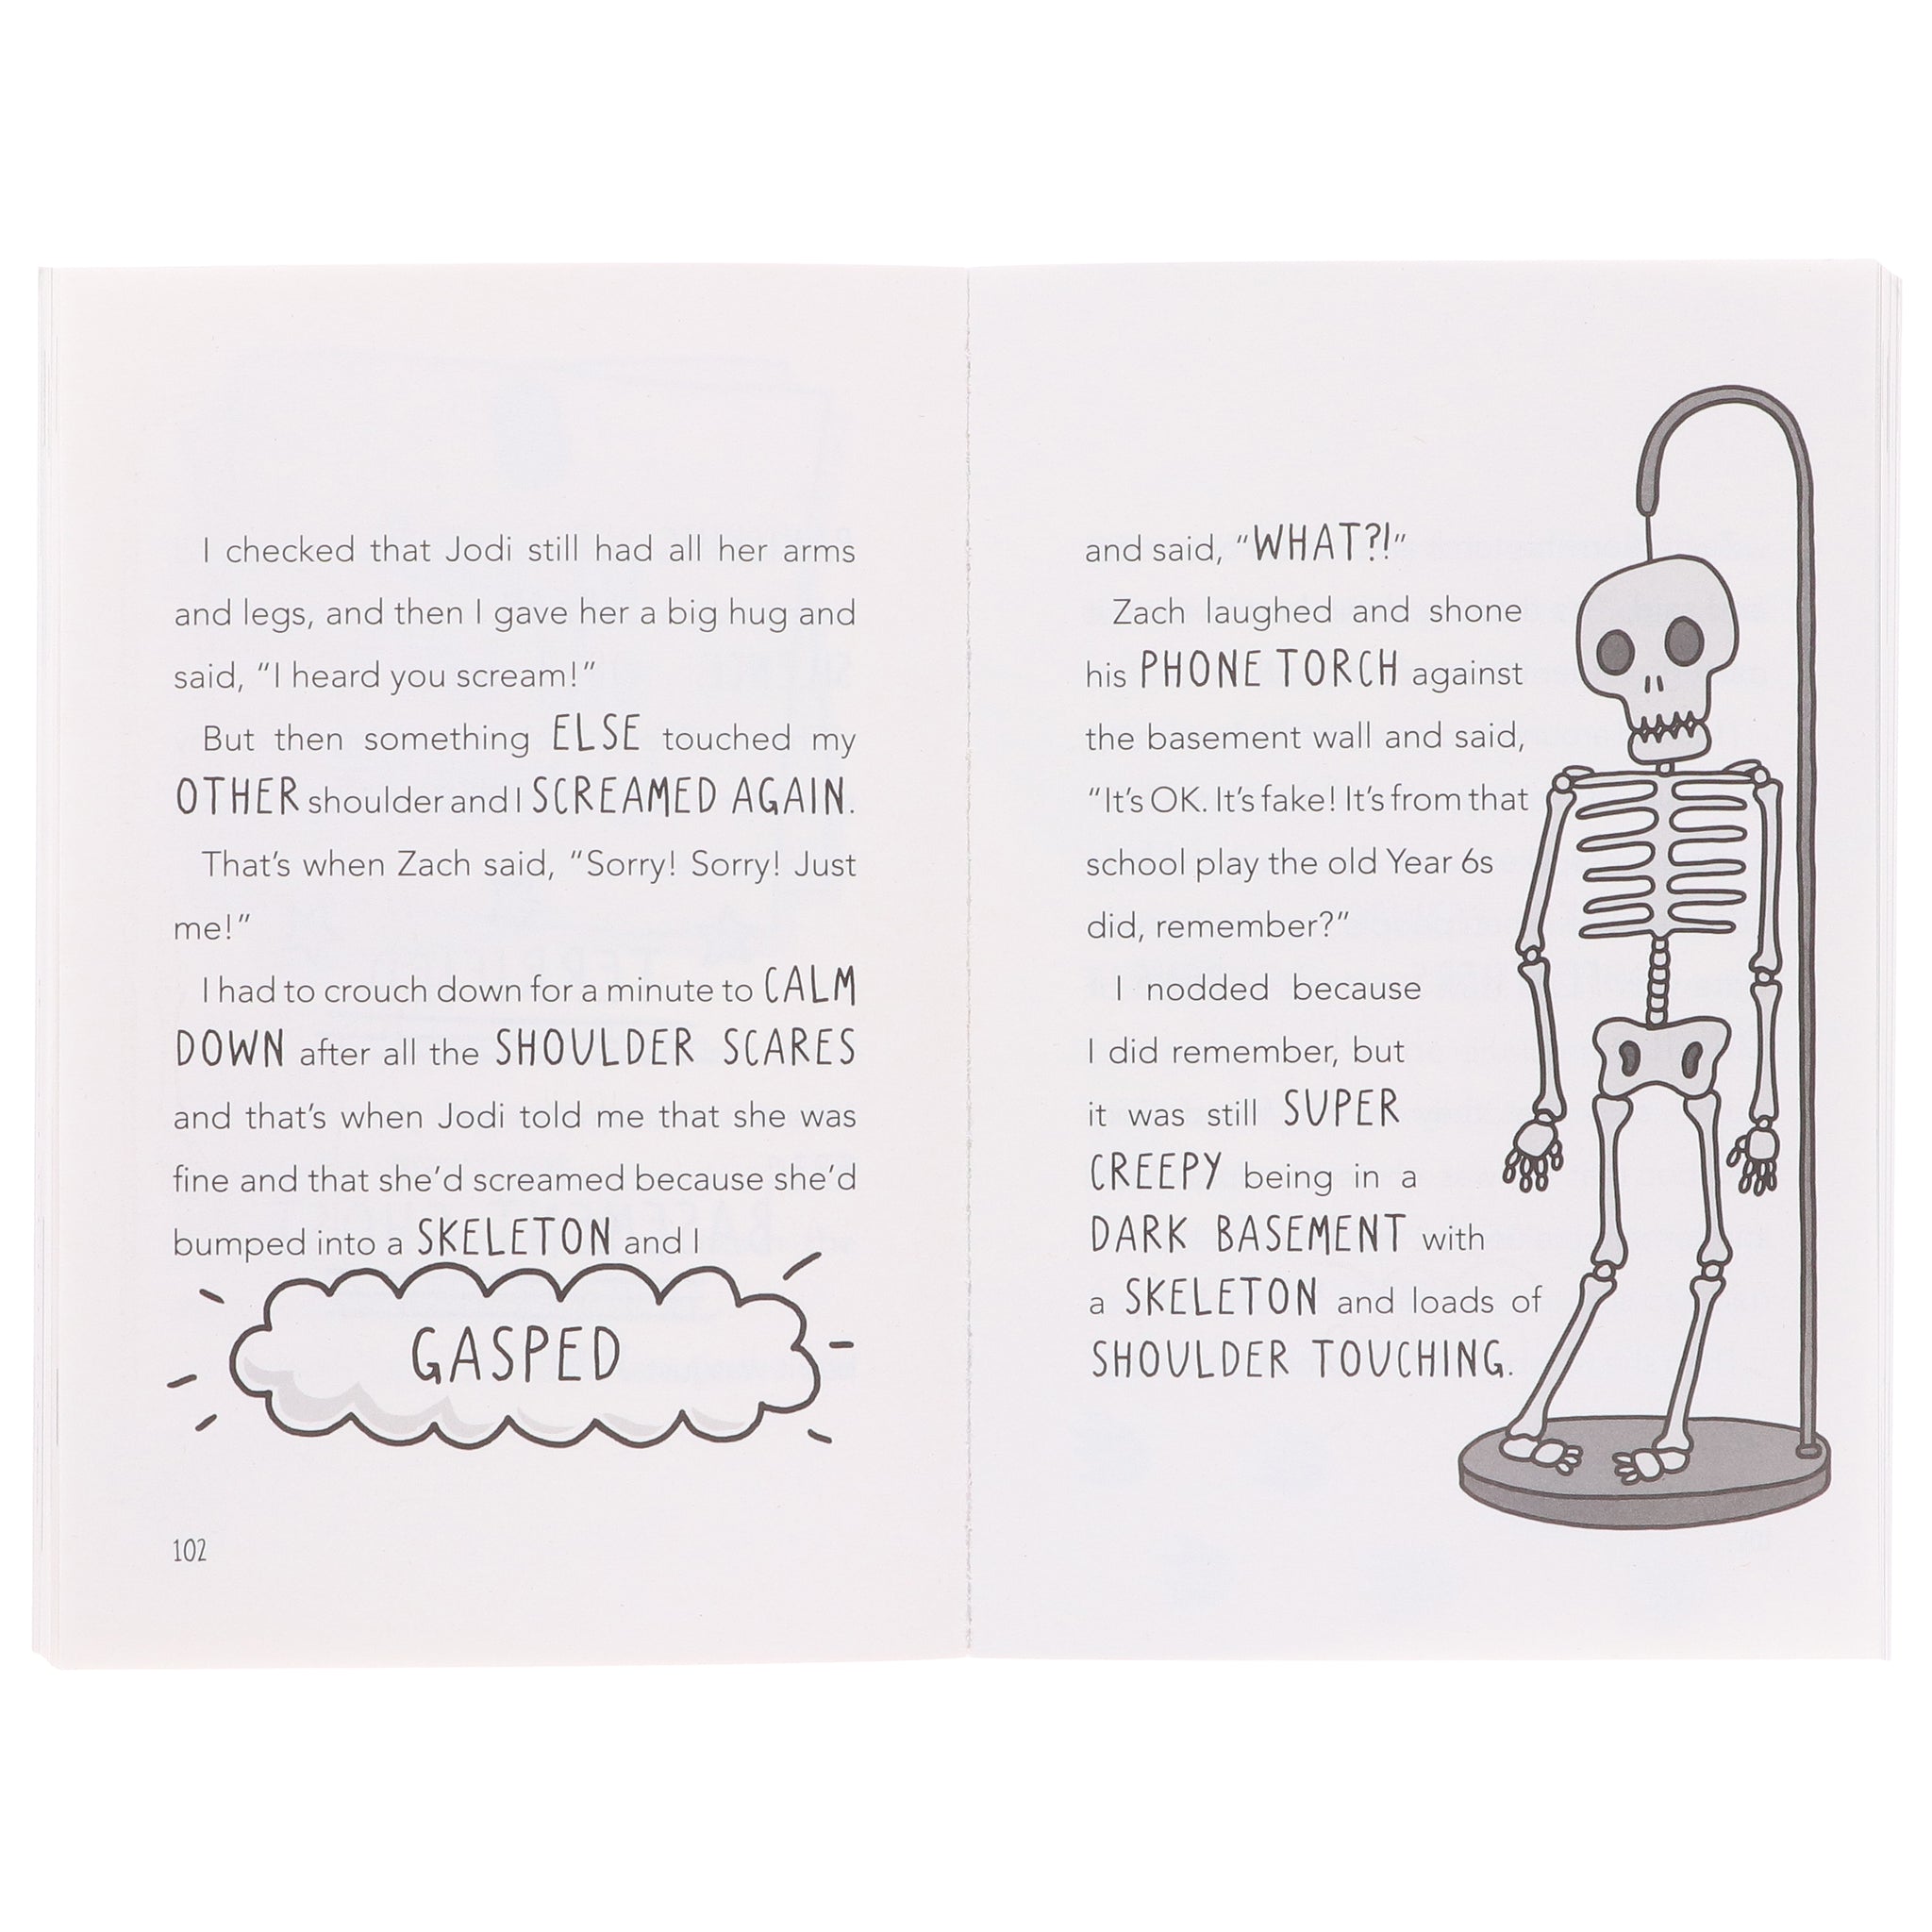 I checked that Jodi still had all her arms
and legs, and then I gave her a big hug and
said, “I heard you scream!”
But then something ELSE touched my
OTHER shoulder and I SCREAMED AGAIN.
That’s when Zach said, “Sorry! Sorry! Just
me!”
I had to crouch down for a minute to CALM
DOWN after all the SHOULDER SCARES
and that’s when Jodi told me that she was
fine and that she’d screamed because she’d
bumped into a SKELETON and I
GASPED
102
and said, “WHAT?!”
Zach laughed and shone
his PHONE TORCH against
the basement wall and said,
“It’s OK. It’s fake! It’s from that
school play the old Year 6s
did, remember?”
I nodded because
I did remember, but
it was still SUPER
CREEPY being in a
DARK BASEMENT with
a SKELETON and loads of
SHOULDER TOUCHING.